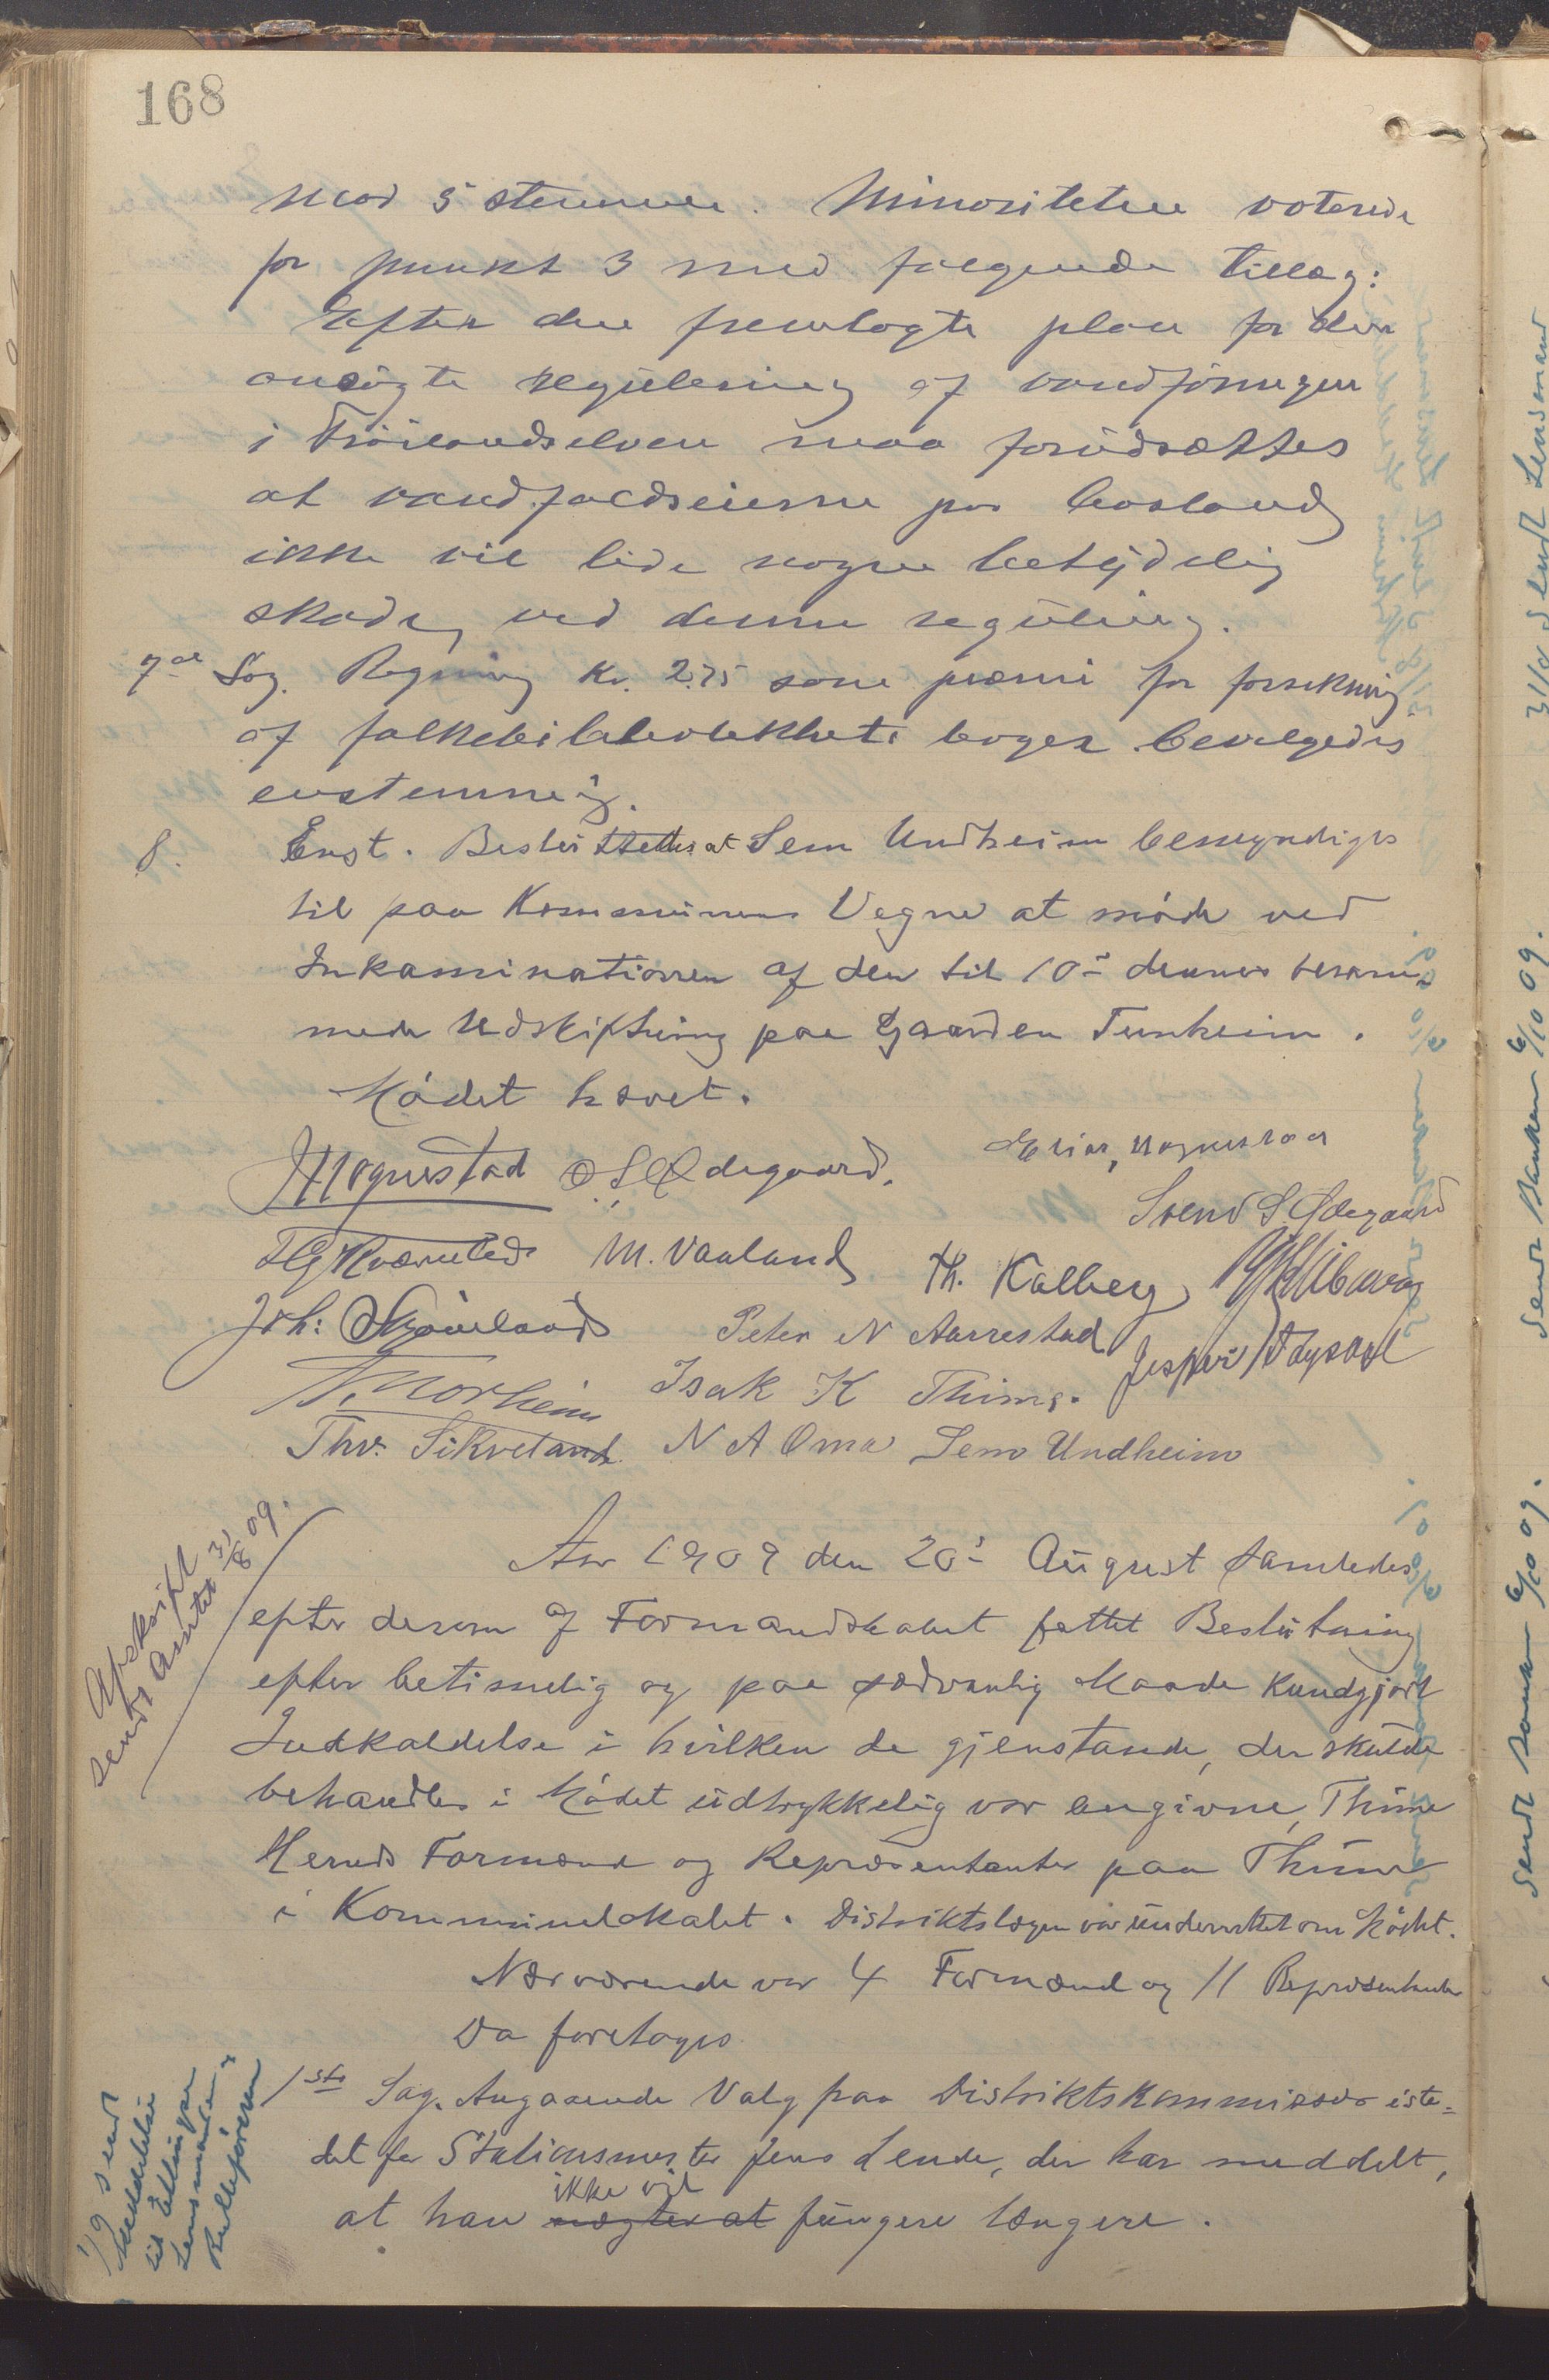 168
mod 5 stemmer. Minoriteten voterede
for punkt 3 med følgende tillæg:
Efter den fremlagte plan for den
ansøgte regulering af vandføringen
i Frøilandselven maa forudsættes
at vandfaldseierne paa
ikke vil lide nogen betydelig
skade ved denne reguling.
7de Sag. Regning Kr. 2.75 som præmi for forsikring
af folkebibliothekets bøger bevilgedes
enstemmig.
8. Enst. Besluttedes at Sem Undheim bemyndiges
til paa Kommunens Vegne at møde ved
Inkaminationen af den til 10de dennes beram-
mede Udskiftning paa Gaarden Tunheim.
Mødet hævet.
Mognestad O. S. Ødegaard. Elias Mognestad
Svend S. Ødegaard
M. Vaaland Th. Kalberg
Joh: Peter N Aarrestad
Isak K Thime. Jesper
Thv. Sikveland N A Oma Sem Undheim
Afskrift
sendt Amtet 31/8 09.
Aar 1909 den 20de August samledes
efter derom af Formandskabet fattet Beslutning
efter betimelig og paa sædvanlig Maade kundgjort
Indkaldelse i hvilken de gjenstande, der skulde
behandles i Mødet udtrykkelig var angivne, Thime
Herreds Formænd og Repræsentanter paa Thime
i Kommunelokalet. Distriktslægen var underrettet om Mødet.
Nærværende var 4 Formænd og 11 Repræsentanter
Da foretoges
1ste Sag. Angaaende Valg paa Distriktskommissær iste-
det for Stationsmester Jens Lende, der har meddelt,
at han nægter at ikke vil fungere længere.
1/9 sendt
Meddelelse
til Ellingsen
Lensmanden &
Rulleføreren
31/8 sendt Lensmand
sendt Banken 6/10 09.
sendt Banken 6/10 09.